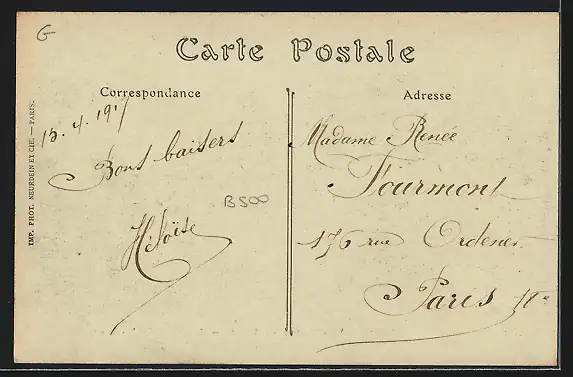 G
Carte Postale
Correspondance
Adresse
15.4.1917
Bons baisers
Héloïse
B500
Madame Renée
Fourmont
176 rue Ordener
Paris
IMP. PHOT. NEURDEIN ET CIE. — PARIS.